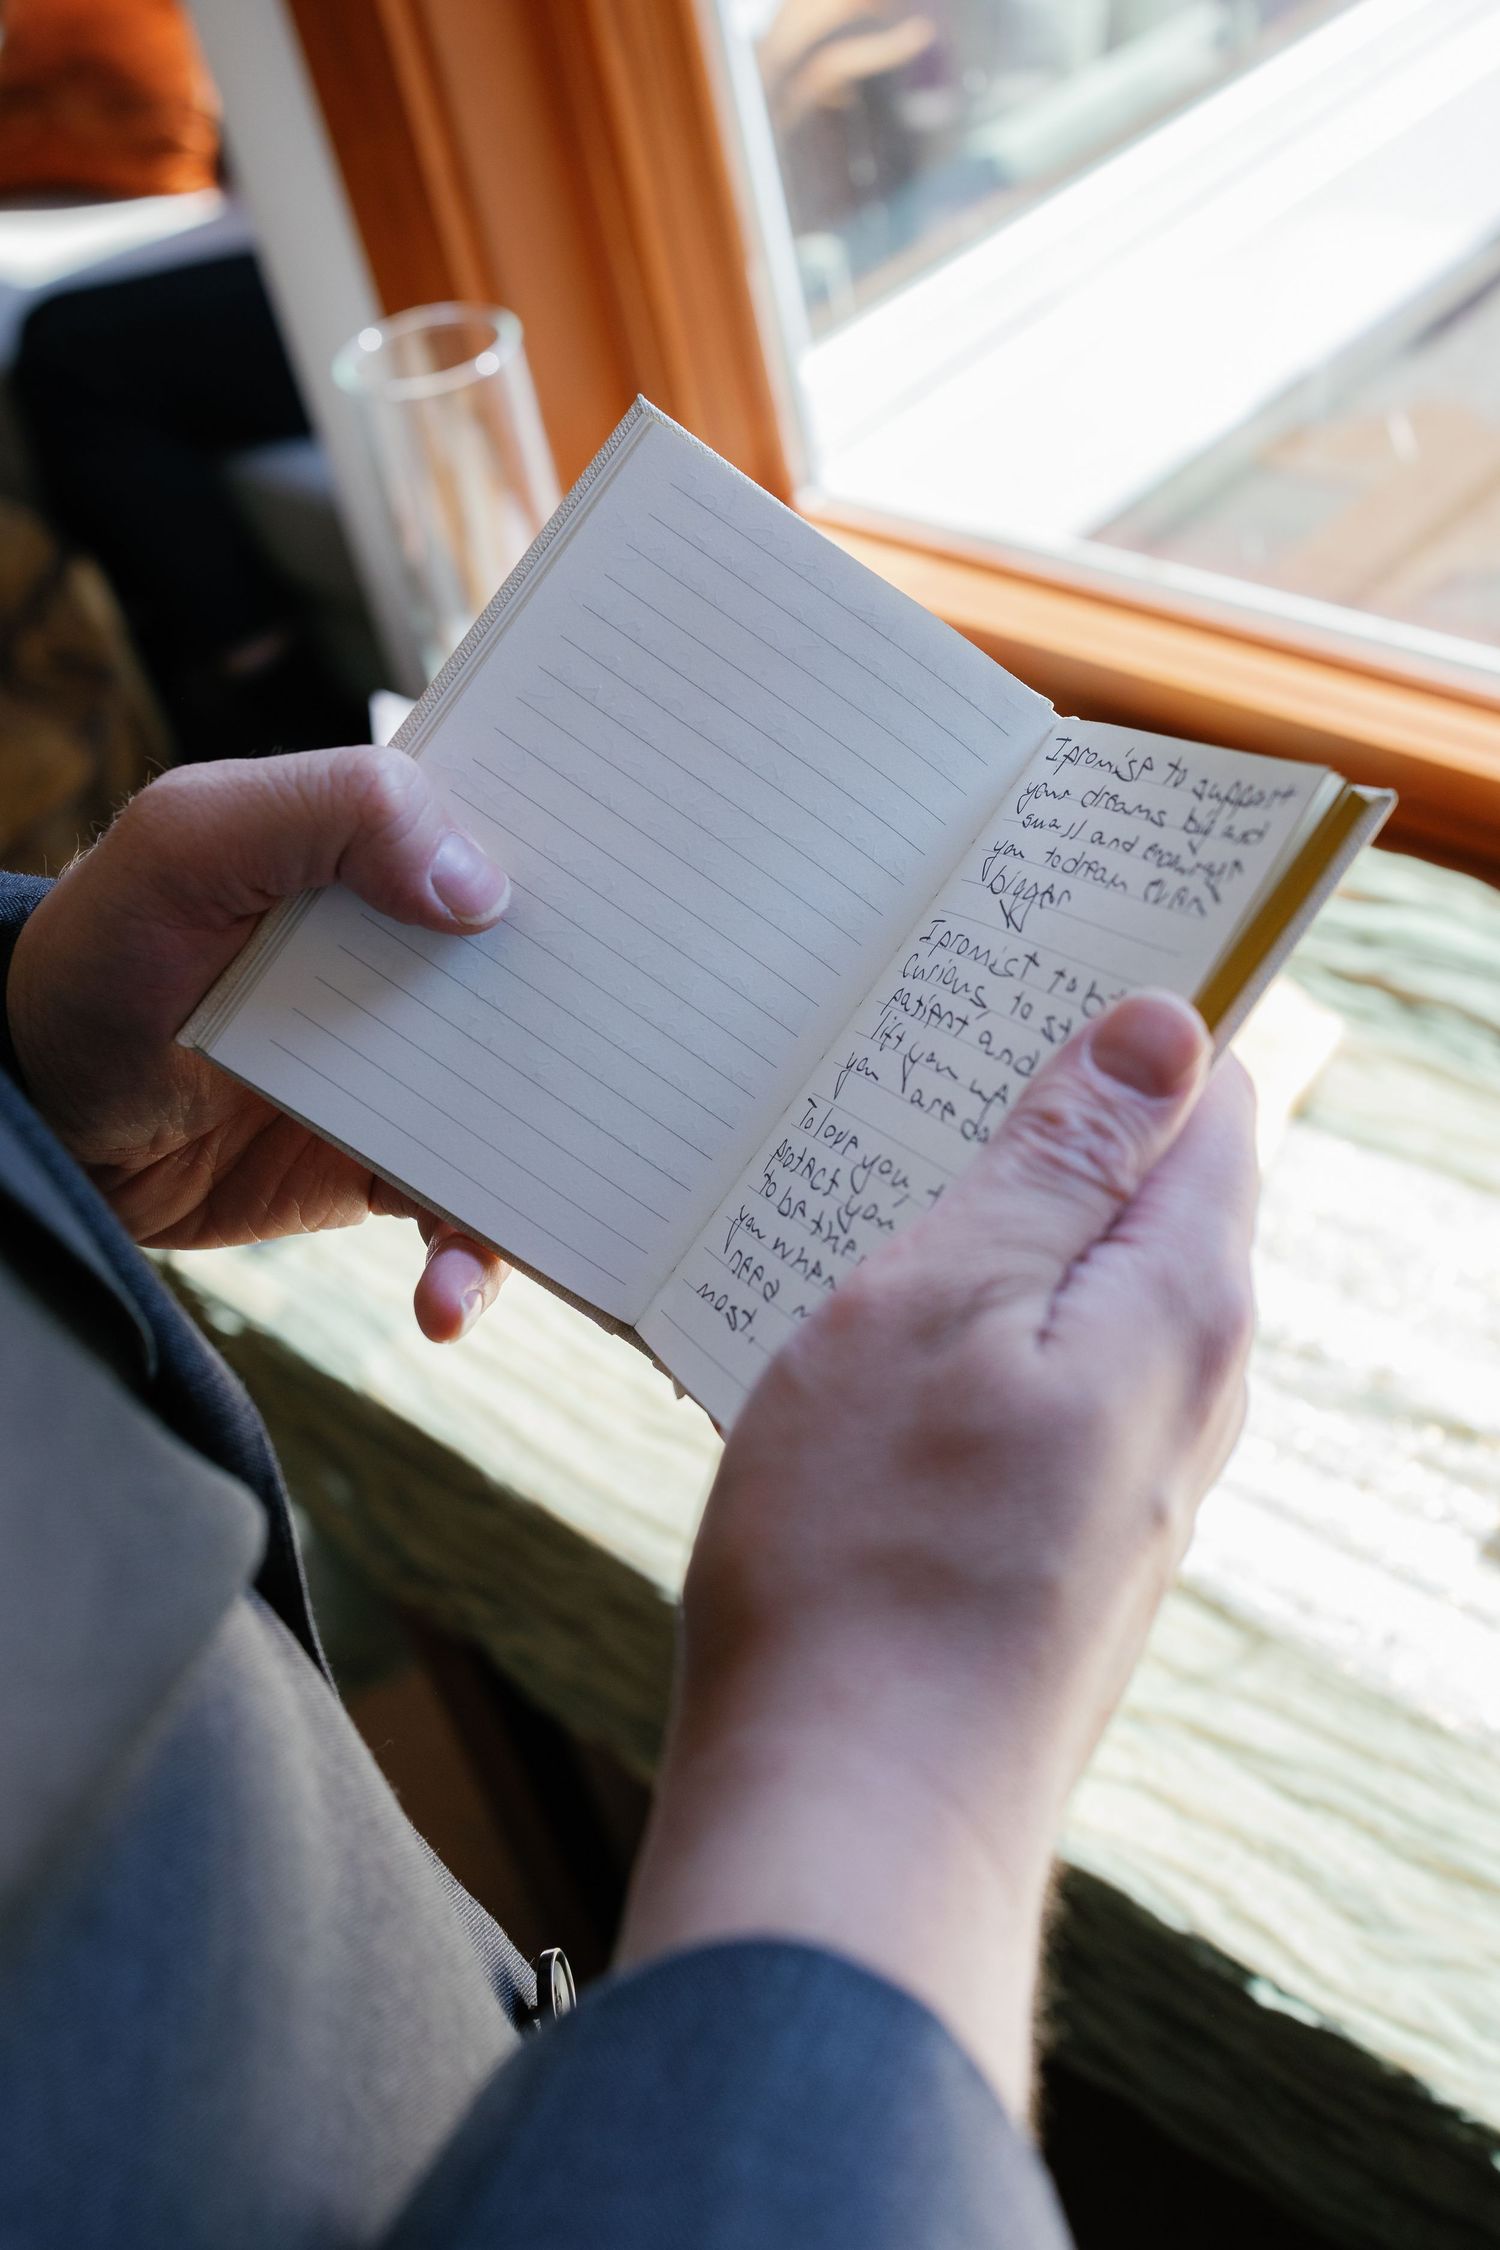 I promise to support
your dreams big and
small and encourage
you to dream even
bigger
I promise to be
curious, to st
patient and
lift you up
you are do
To love you, t
protect you
to be the
you when
need m
most.